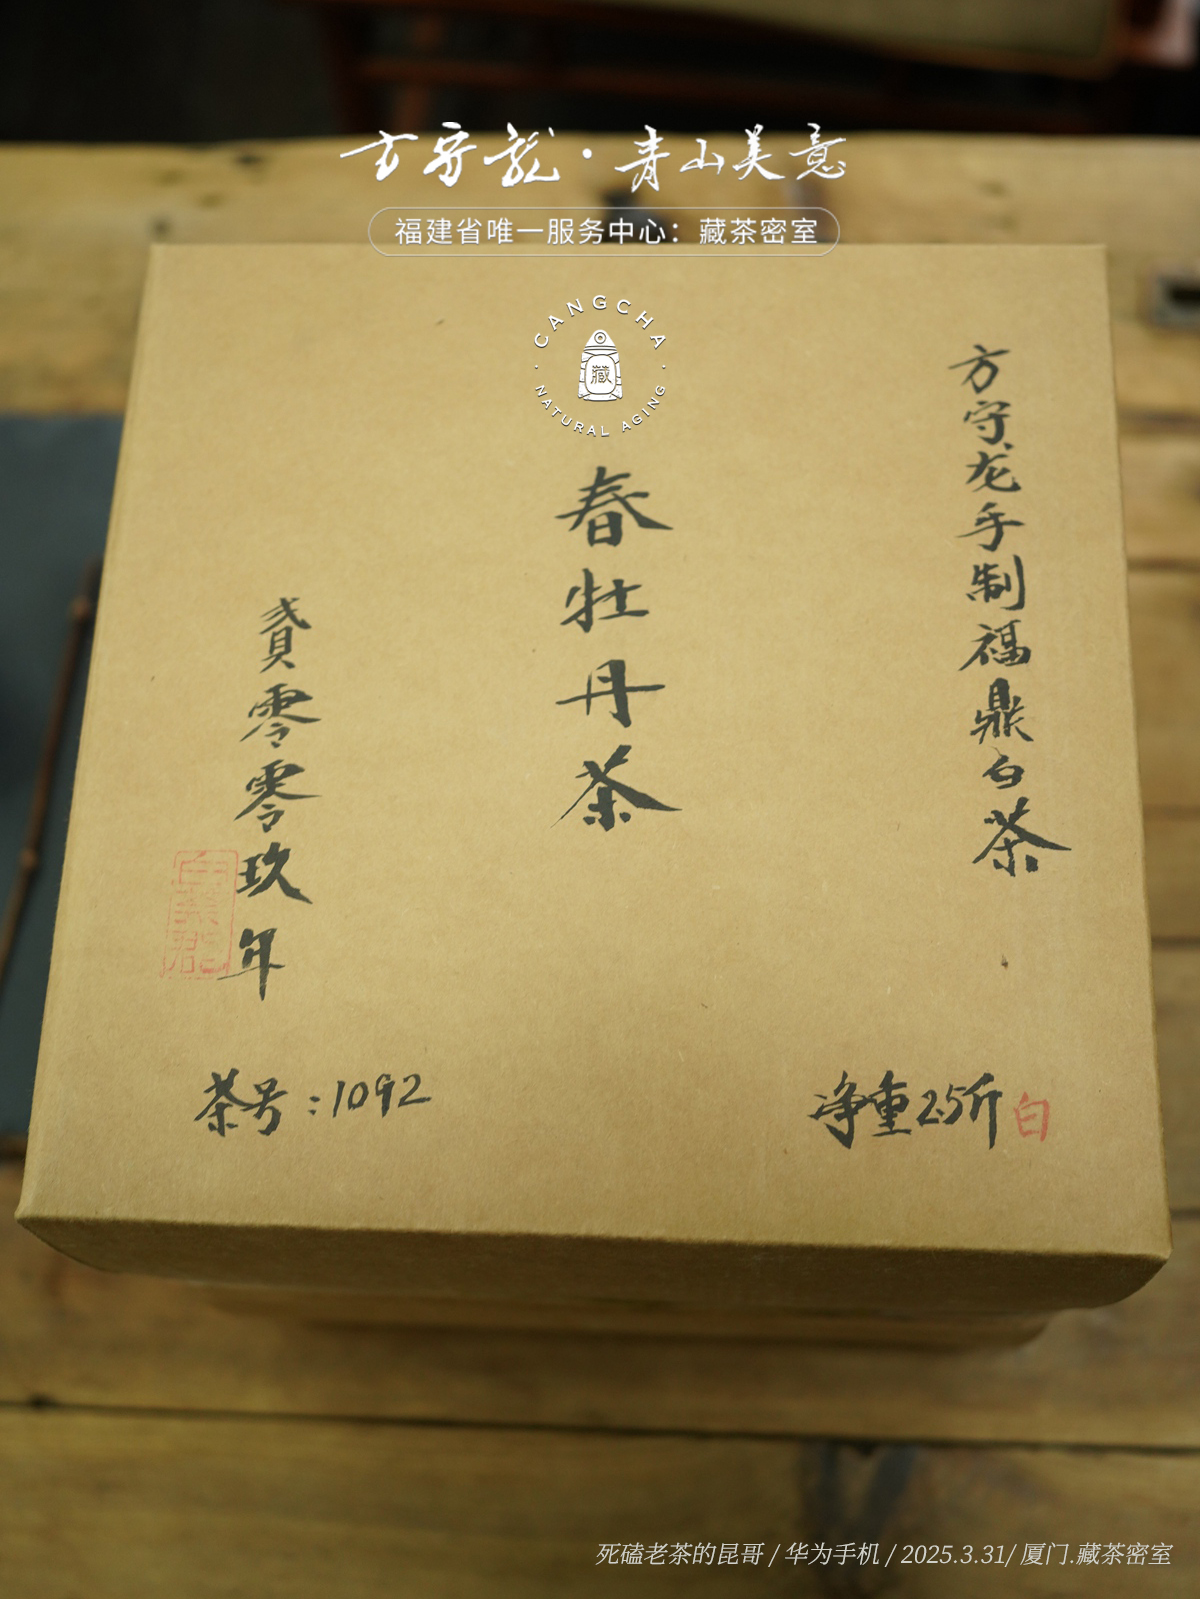 方守龍·青山美意
福建省唯一服务中心：藏茶密室
CANGCHA
藏
NATURAL AGING
方守龙手制福鼎白茶
春牡丹茶
贰零零玖年
茶号：1092
净重2.5斤
白
死磕老茶的昆哥 / 华为手机 / 2025.3.31/ 厦门.藏茶密室